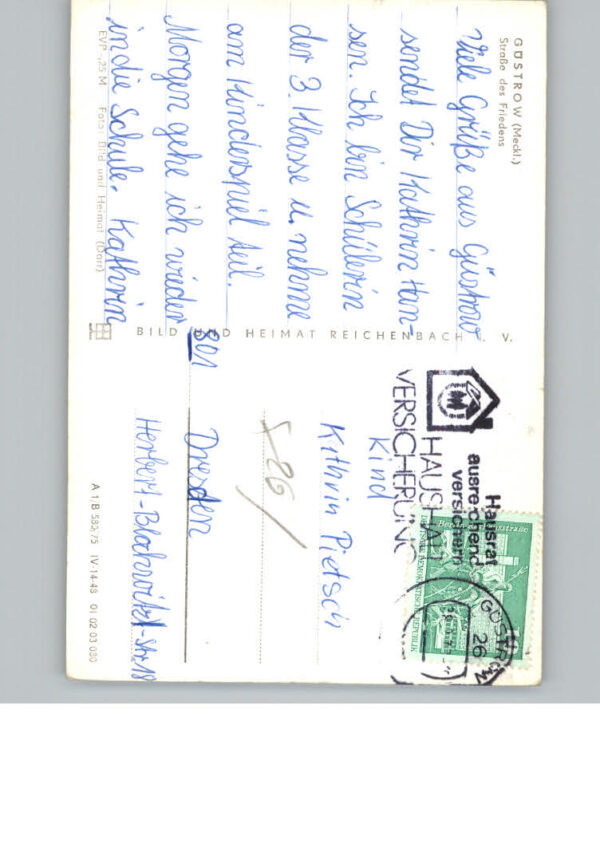 GÜSTROW (Meckl.)
Straße des Friedens
Viele Grüße aus Güstrow
sendet Dir Kathrin Han-
sen. Ich bin Schülerin
der 3. Klasse u. nehme
am Kinderspiel teil.
Morgen gehe ich wieder
in die Schule. Kathrin
EVP -,25 M Foto: Bild und Heimat (Darr)
BILD UND HEIMAT REICHENBACH I. V.
Hausrat
ausreichend
versichern
HAUSHALT
VERSICHERUNG
GÜSTROW
26
DEUTSCHE DEMOKRATISCHE REPUBLIK
Kind
Kathrin Pietsch
801
Dresden
A 1/B 583/75 IV-14-48 01 02 03 080